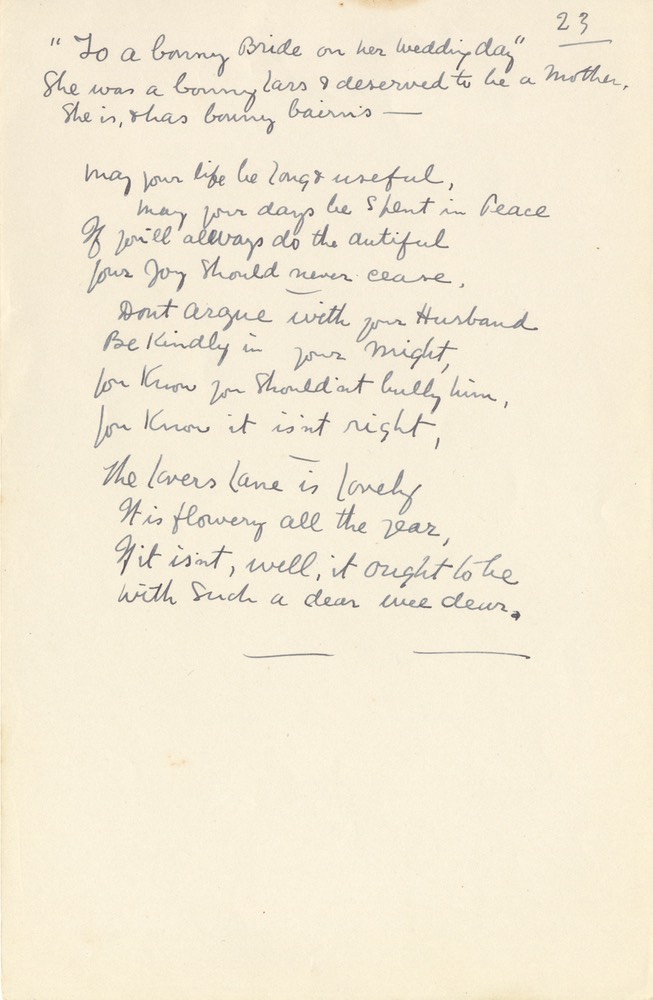 23
"To a bonny Bride on her wedding day"
She was a bonny lass & deserved to be a Mother.
She is, & has bonny bairns —
May your life be long & useful,
May your days be Spent in Peace
If you'll allways do the dutiful
Your Joy Should never cease.
Dont argue with your Husband
Be Kindly in your Might,
You Know you Should'nt bully him,
You Know it is'nt right,
The lovers lane is lovely
It is flowery all the year,
If it isnt, well, it ought to be
With Such a dear wee dear.